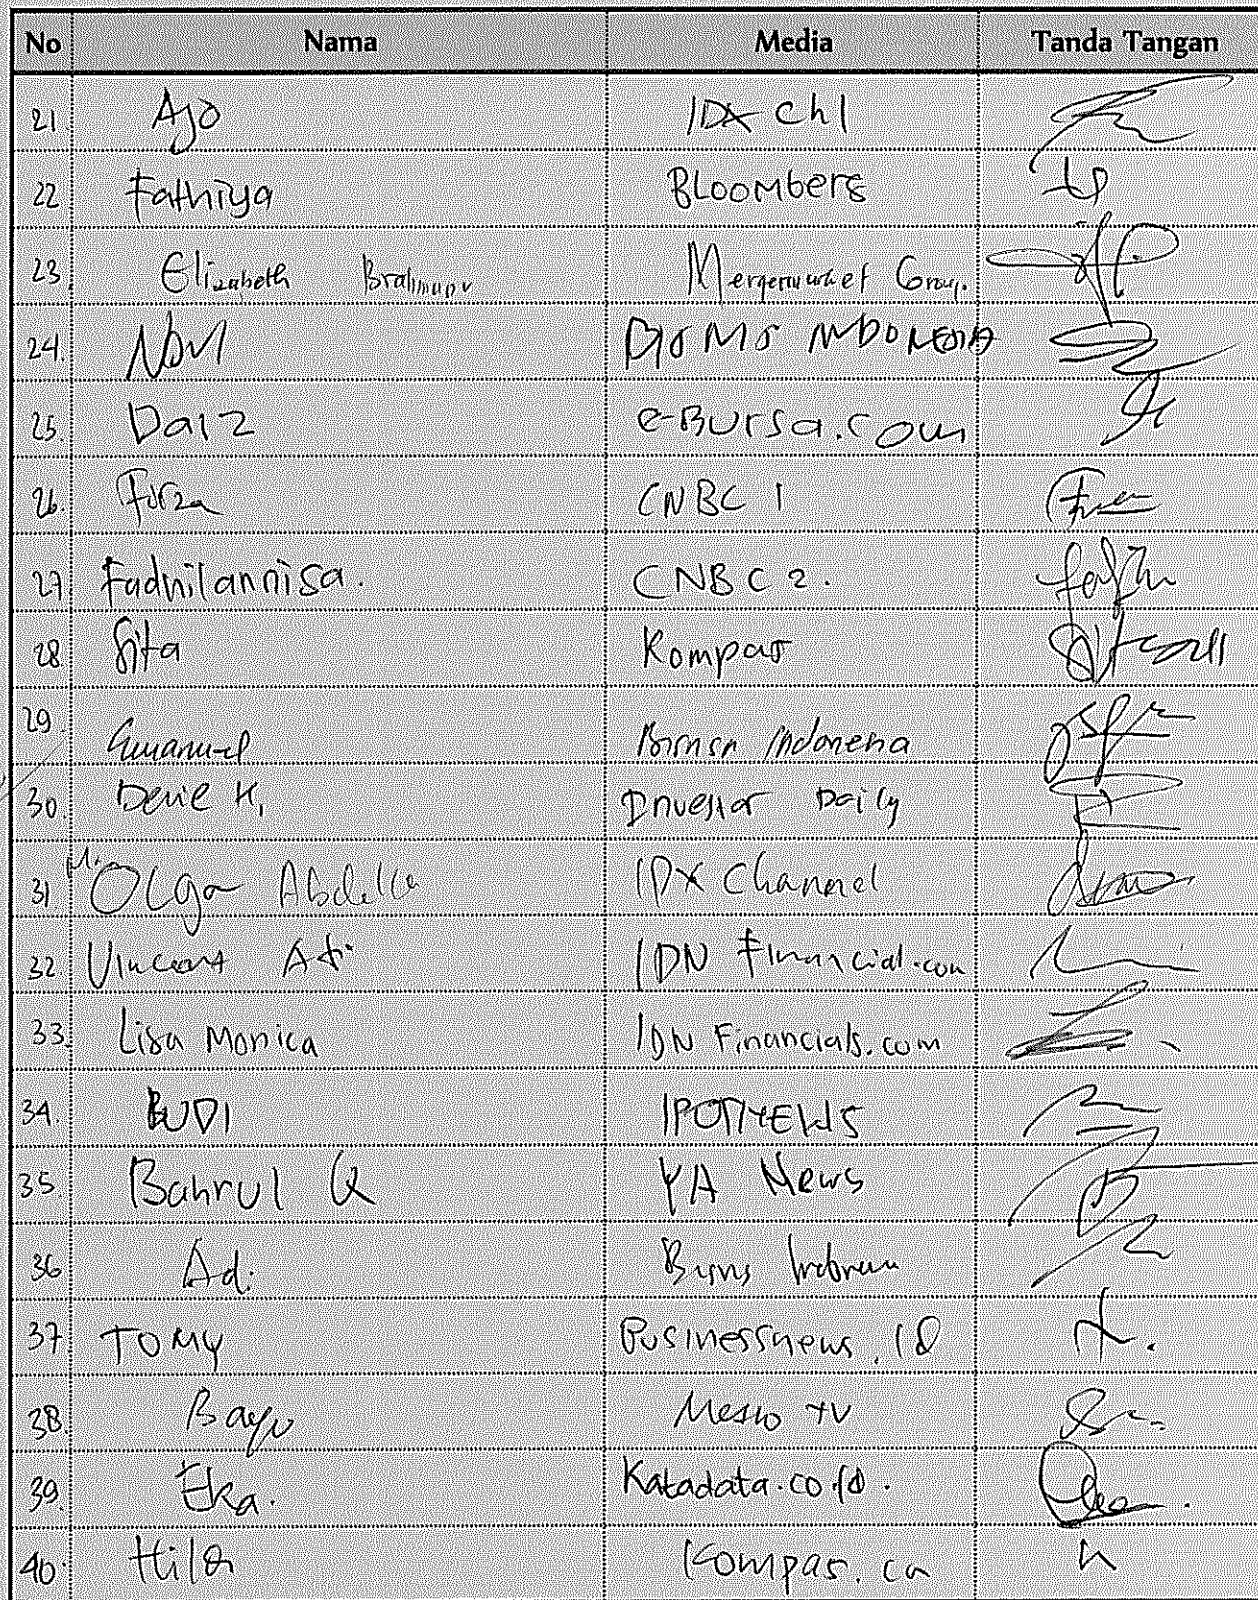 No Nama Media Tanda Tangan
21. Ajo IDX Ch1
22. Fathiya Bloomberg
23. Elizabeth Group.
24. INDONESIA
25. Daiz e-Bursa.com
26. Firza CNBC 1
27 Fadhilannisa. CNBC 2.
28 Sita Kompas
29. Emanuel Bisnis Indonesia
30. Devie K, Investor Daily
31 Olga Abdella IDX Channel
32 Vincent IDN Financial.com
33. Lisa Monica IDN Financials.com
34. BUDI IPOTNEWS
35. Bahrul Q YA News
36 Adi
37. TOMY Businessnews.id
38. Bayu Metro TV
39. Eka. Katadata.co.id.
40. Hilda Kompas.